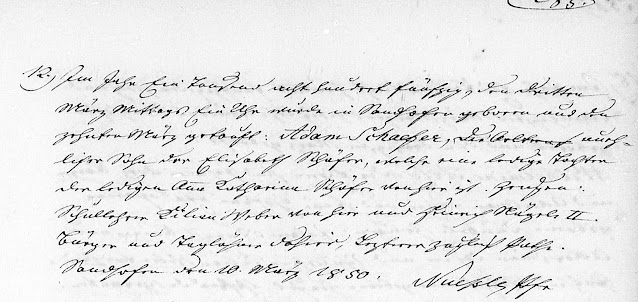 85.
12.) Im Jahr Ein Tausend acht hundert fünfzig, den dritten
März Mittags Ein Uhr wurde in Sandhofen geboren und den
zehnten März getauft: Adam Schaefer, unehe-
licher Sohn der Elisabeth Schäfer, welche eine ledige Tochter
der ledigen Anna Katharina Schäfer von hier ist. Zeugen:
Schullehrer Kilian Weber von hier und Heinrich Nägele II.
Bürger und Taglöhner dahier, Letzterer zugleich Pathe.
Sandhofen den 10. März 1850.
Nueßle Pfr